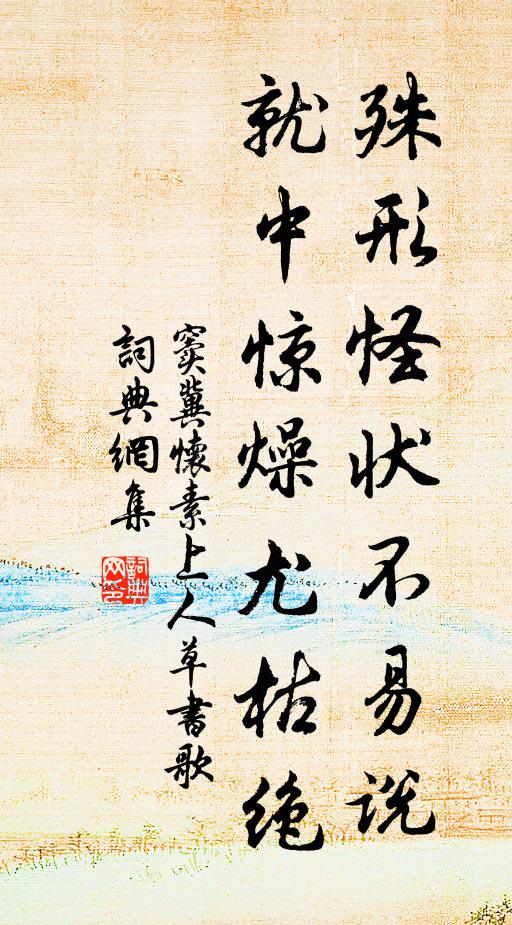 殊形怪状不易说
就中惊燥尤枯绝
窦冀懷素上人草書歌
詞典網集
詞典网印